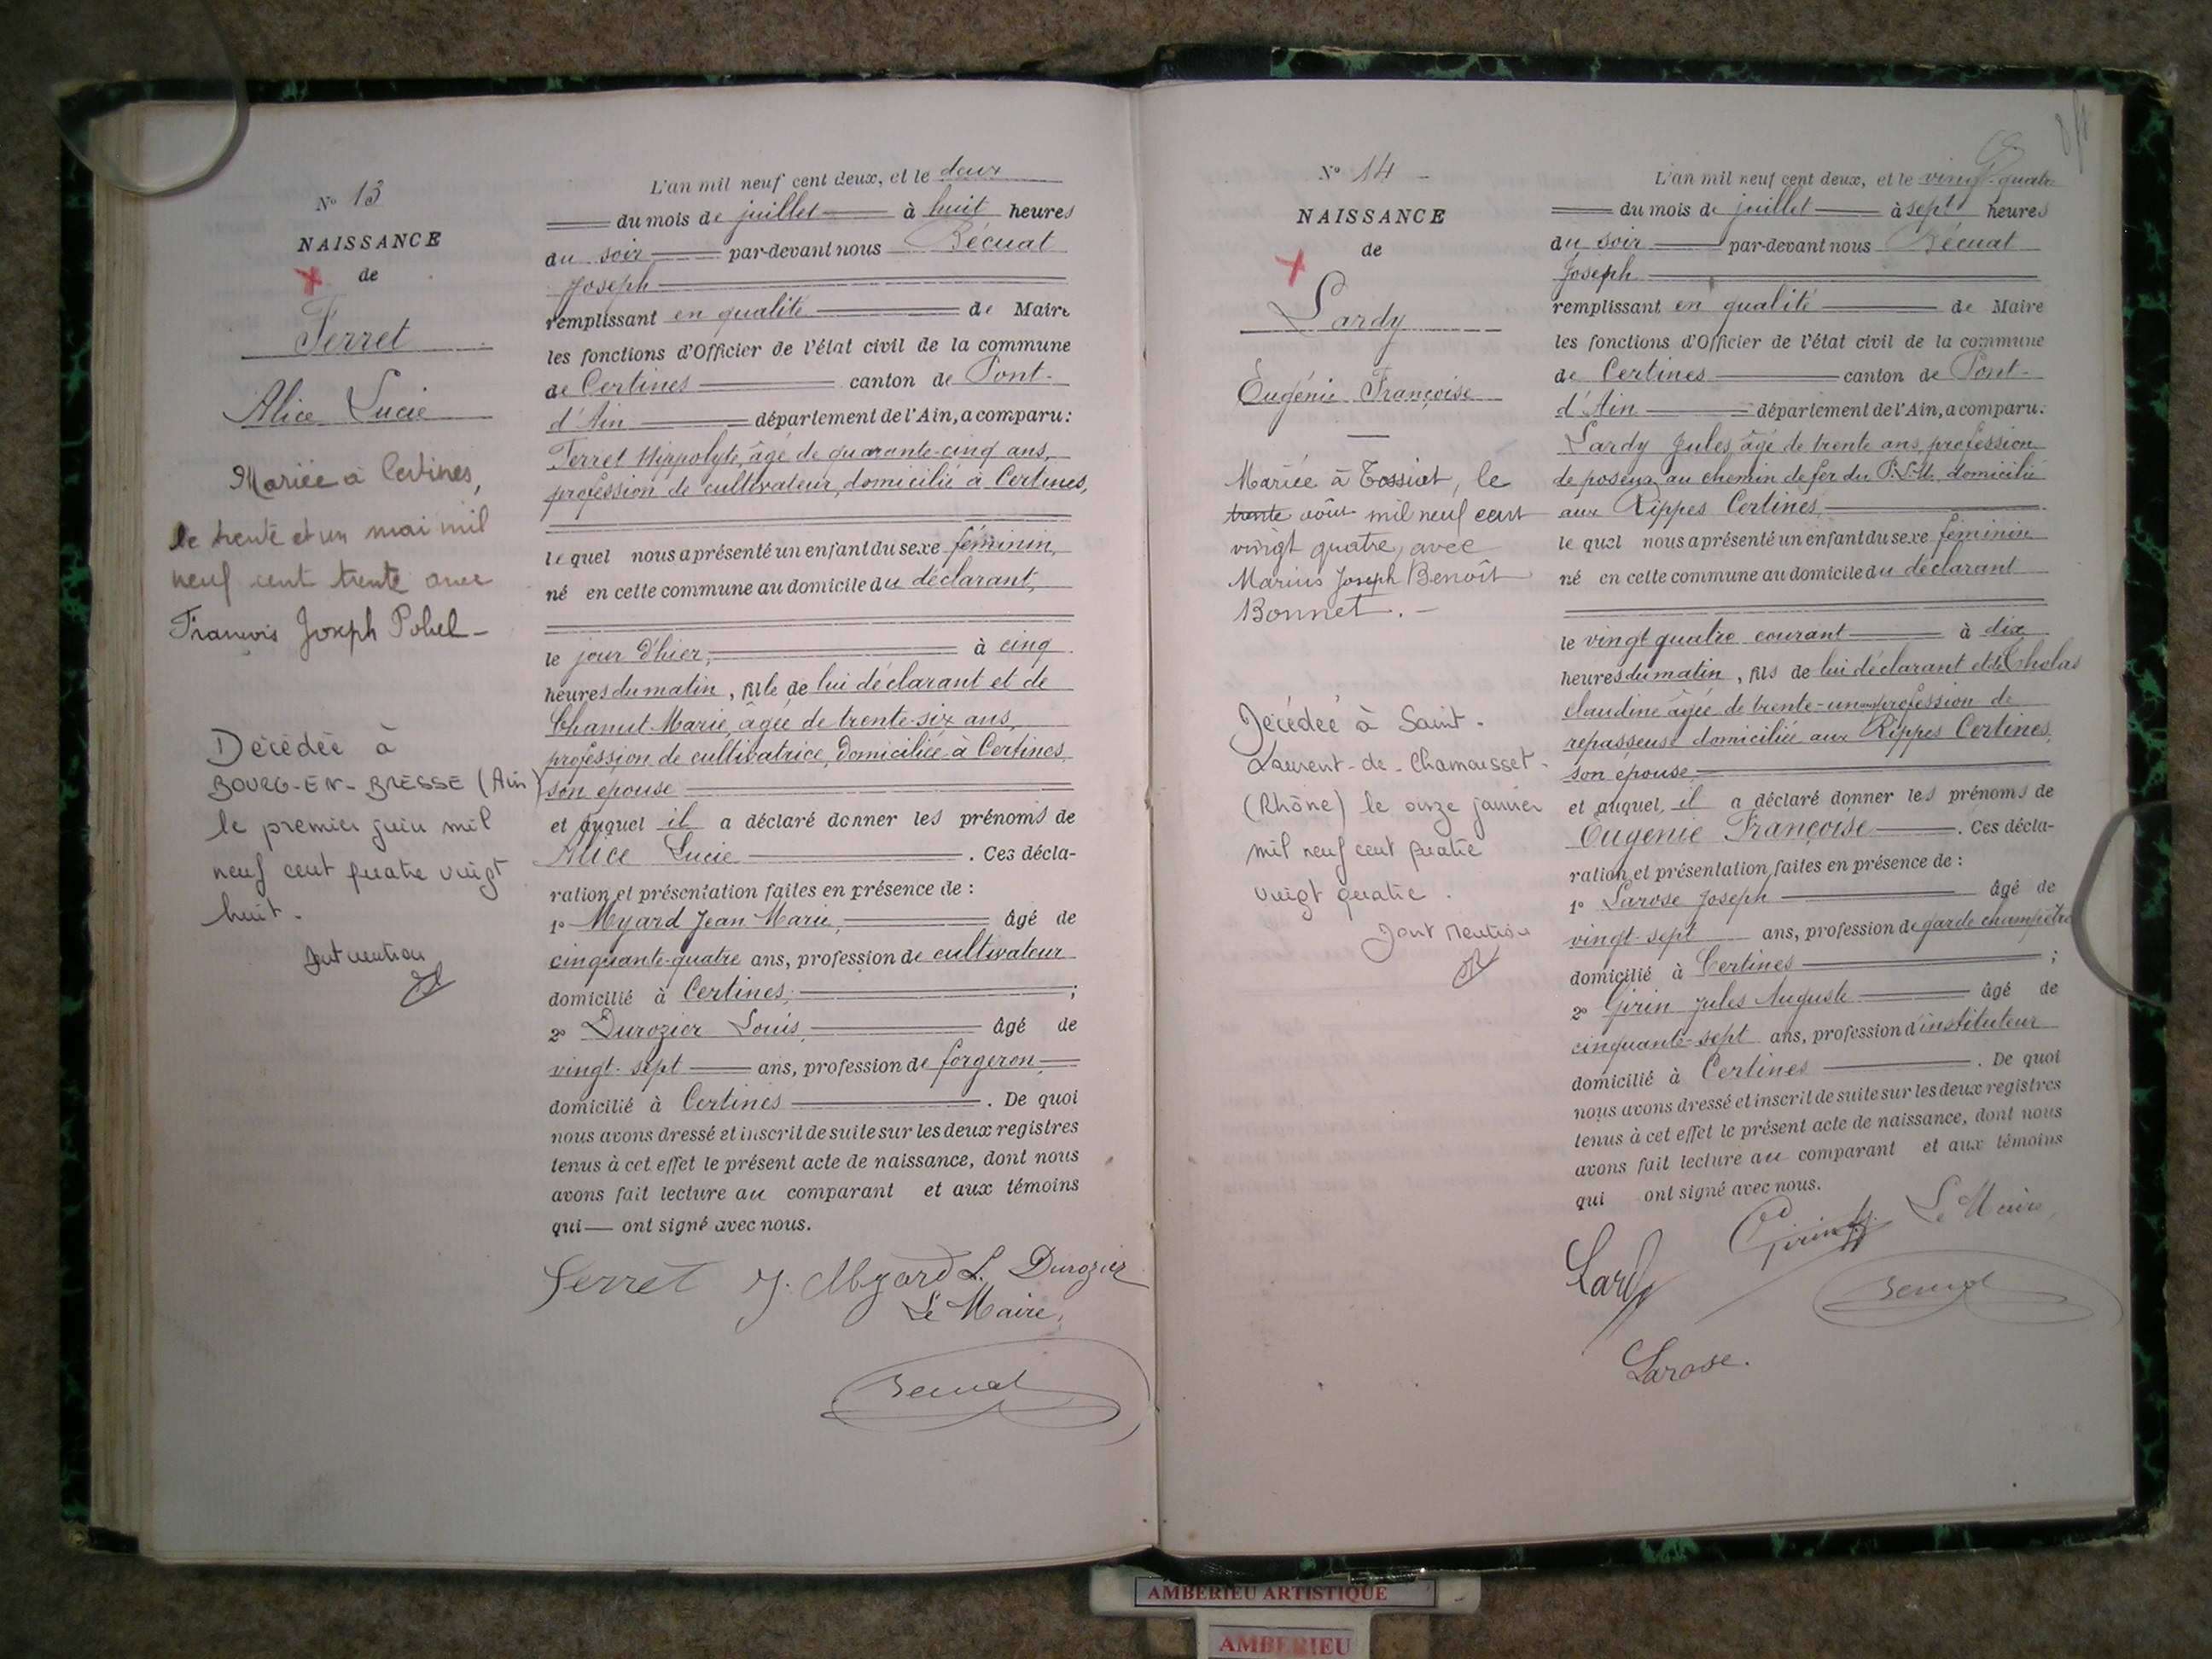 N° 13
NAISSANCE
de
Ferret
Alice Lucie
Mariée à Certines,
le trente et un mai mil
neuf cent trente avec
François Joseph Pobel -
Décédée à
BOURG-EN-BRESSE (Ain)
le premier juin mil
neuf cent quatre vingt
huit.
Dont mention
L'an mil neuf cent deux, et le deux
du mois de juillet à huit heures
du soir par-devant nous Bécuat
Joseph
remplissant en qualité de Maire
les fonctions d'Officier de l'état civil de la commune
de Certines canton de Pont-
d'Ain département de l'Ain, a comparu:
Ferret Hippolyte, âgé de quarante-cinq ans,
profession de cultivateur, domicilié à Certines,
lequel nous a présenté un enfant du sexe féminin,
né en cette commune au domicile du déclarant,
le jour d'hier, à cinq
heures du matin, fille de lui déclarant et de
Chanut Marie, âgée de trente-six ans,
profession de cultivatrice, domiciliée à Certines,
son épouse
et auquel il a déclaré donner les prénoms de
Alice Lucie. Ces décla-
ration et présentation faites en présence de :
1° Myard Jean Marie, âgé de
cinquante-quatre ans, profession de cultivateur
domicilié à Certines ;
2° Durozier Louis, âgé de
vingt-sept ans, profession de forgeron,
domicilié à Certines. De quoi
nous avons dressé et inscrit de suite sur les deux registres
tenus à cet effet le présent acte de naissance, dont nous
avons fait lecture au comparant et aux témoins
qui — ont signé avec nous.
Ferret J. Myard L. Durozier
Le Maire,
Bécuat
N° 14 -
NAISSANCE
de
Lardy
Eugénie Françoise
Mariée à Tossiat, le
trente août mil neuf cent
vingt quatre, avec
Marius Joseph Benoît
Bonnet. -
Décédée à Saint-
Laurent-de-Chamousset-
(Rhône) le onze janvier
mil neuf cent quatre
vingt quatre.
Dont mention
L'an mil neuf cent deux, et le vingt-quatre
du mois de juillet à sept heures
du soir par-devant nous Bécuat
Joseph
remplissant en qualité de Maire
les fonctions d'Officier de l'état civil de la commune
de Certines canton de Pont-
d'Ain département de l'Ain, a comparu.
Lardy Jules, âgé de trente ans, profession
de poseur au chemin de fer du P.L.M. domicilié
aux Rippes Certines,
lequel nous a présenté un enfant du sexe féminin
né en cette commune au domicile du déclarant
le vingt quatre courant à dix
heures du matin, fils de lui déclarant et de Cholas
Claudine âgée de trente-un ans, profession de
repasseuse domiciliée aux Rippes Certines,
son épouse
et auquel, il a déclaré donner les prénoms de
Eugénie Françoise. Ces décla-
ration et présentation faites en présence de :
1° Larose Joseph âgé de
vingt-sept ans, profession de garde champêtre
domicilié à Certines ;
2° Girin Jules Auguste âgé de
cinquante-sept ans, profession d'instituteur
domicilié à Certines. De quoi
nous avons dressé et inscrit de suite sur les deux registres
tenus à cet effet le présent acte de naissance, dont nous
avons fait lecture au comparant et aux témoins
qui ont signé avec nous.
Lardy Girin Le Maire,
Bécuat
Larose.
AMBERIEU ARTISTIQUE
AMBERIEU